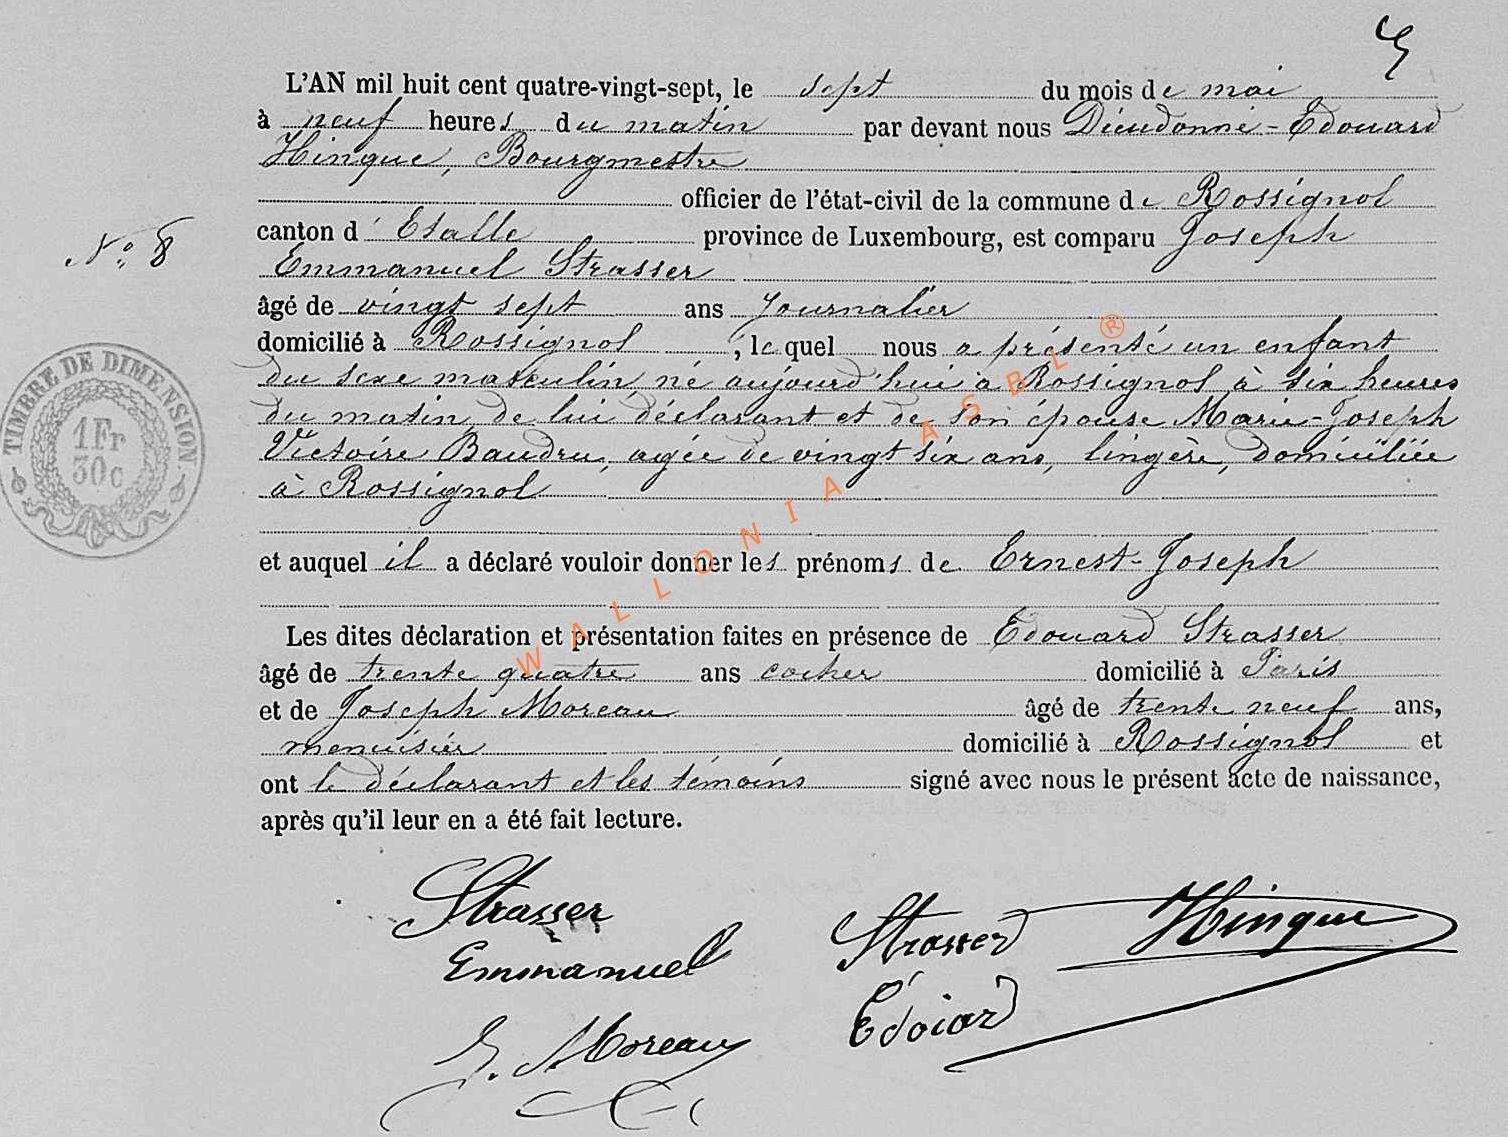 L'AN mil huit cent quatre-vingt-sept, le sept du mois de mai
à neuf heures du matin par devant nous Dieudonné-Edouard
Hinque, Bourgmestre
officier de l'état-civil de la commune de Rossignol
canton d'Etalle province de Luxembourg, est comparu Joseph
Nº 8
Emmanuel Strasser
âgé de vingt sept ans journalier
domicilié à Rossignol, lequel nous a présenté un enfant
du sexe masculin né aujourd'hui à Rossignol à six heures
du matin de lui déclarant et de son épouse Marie-Joseph
Victoire Baudru, agée de vingt six ans, lingère, domiciliée
à Rossignol
et auquel il a déclaré vouloir donner les prénoms de Ernest-Joseph
Les dites déclaration et présentation faites en présence de Edouard Strasser
âgé de trente quatre ans cocher domicilié à Paris
et de Joseph Moreau âgé de trente neuf ans,
menuisier domicilié à Rossignol et
ont le déclarant et les témoins signé avec nous le présent acte de naissance,
après qu'il leur en a été fait lecture.
Strasser
Emmanuel
Strasser
Edoiard
Hinque
J. Moreau
TIMBRE DE DIMENSION.
1Fr
30c
WALLONIA ASBL ®